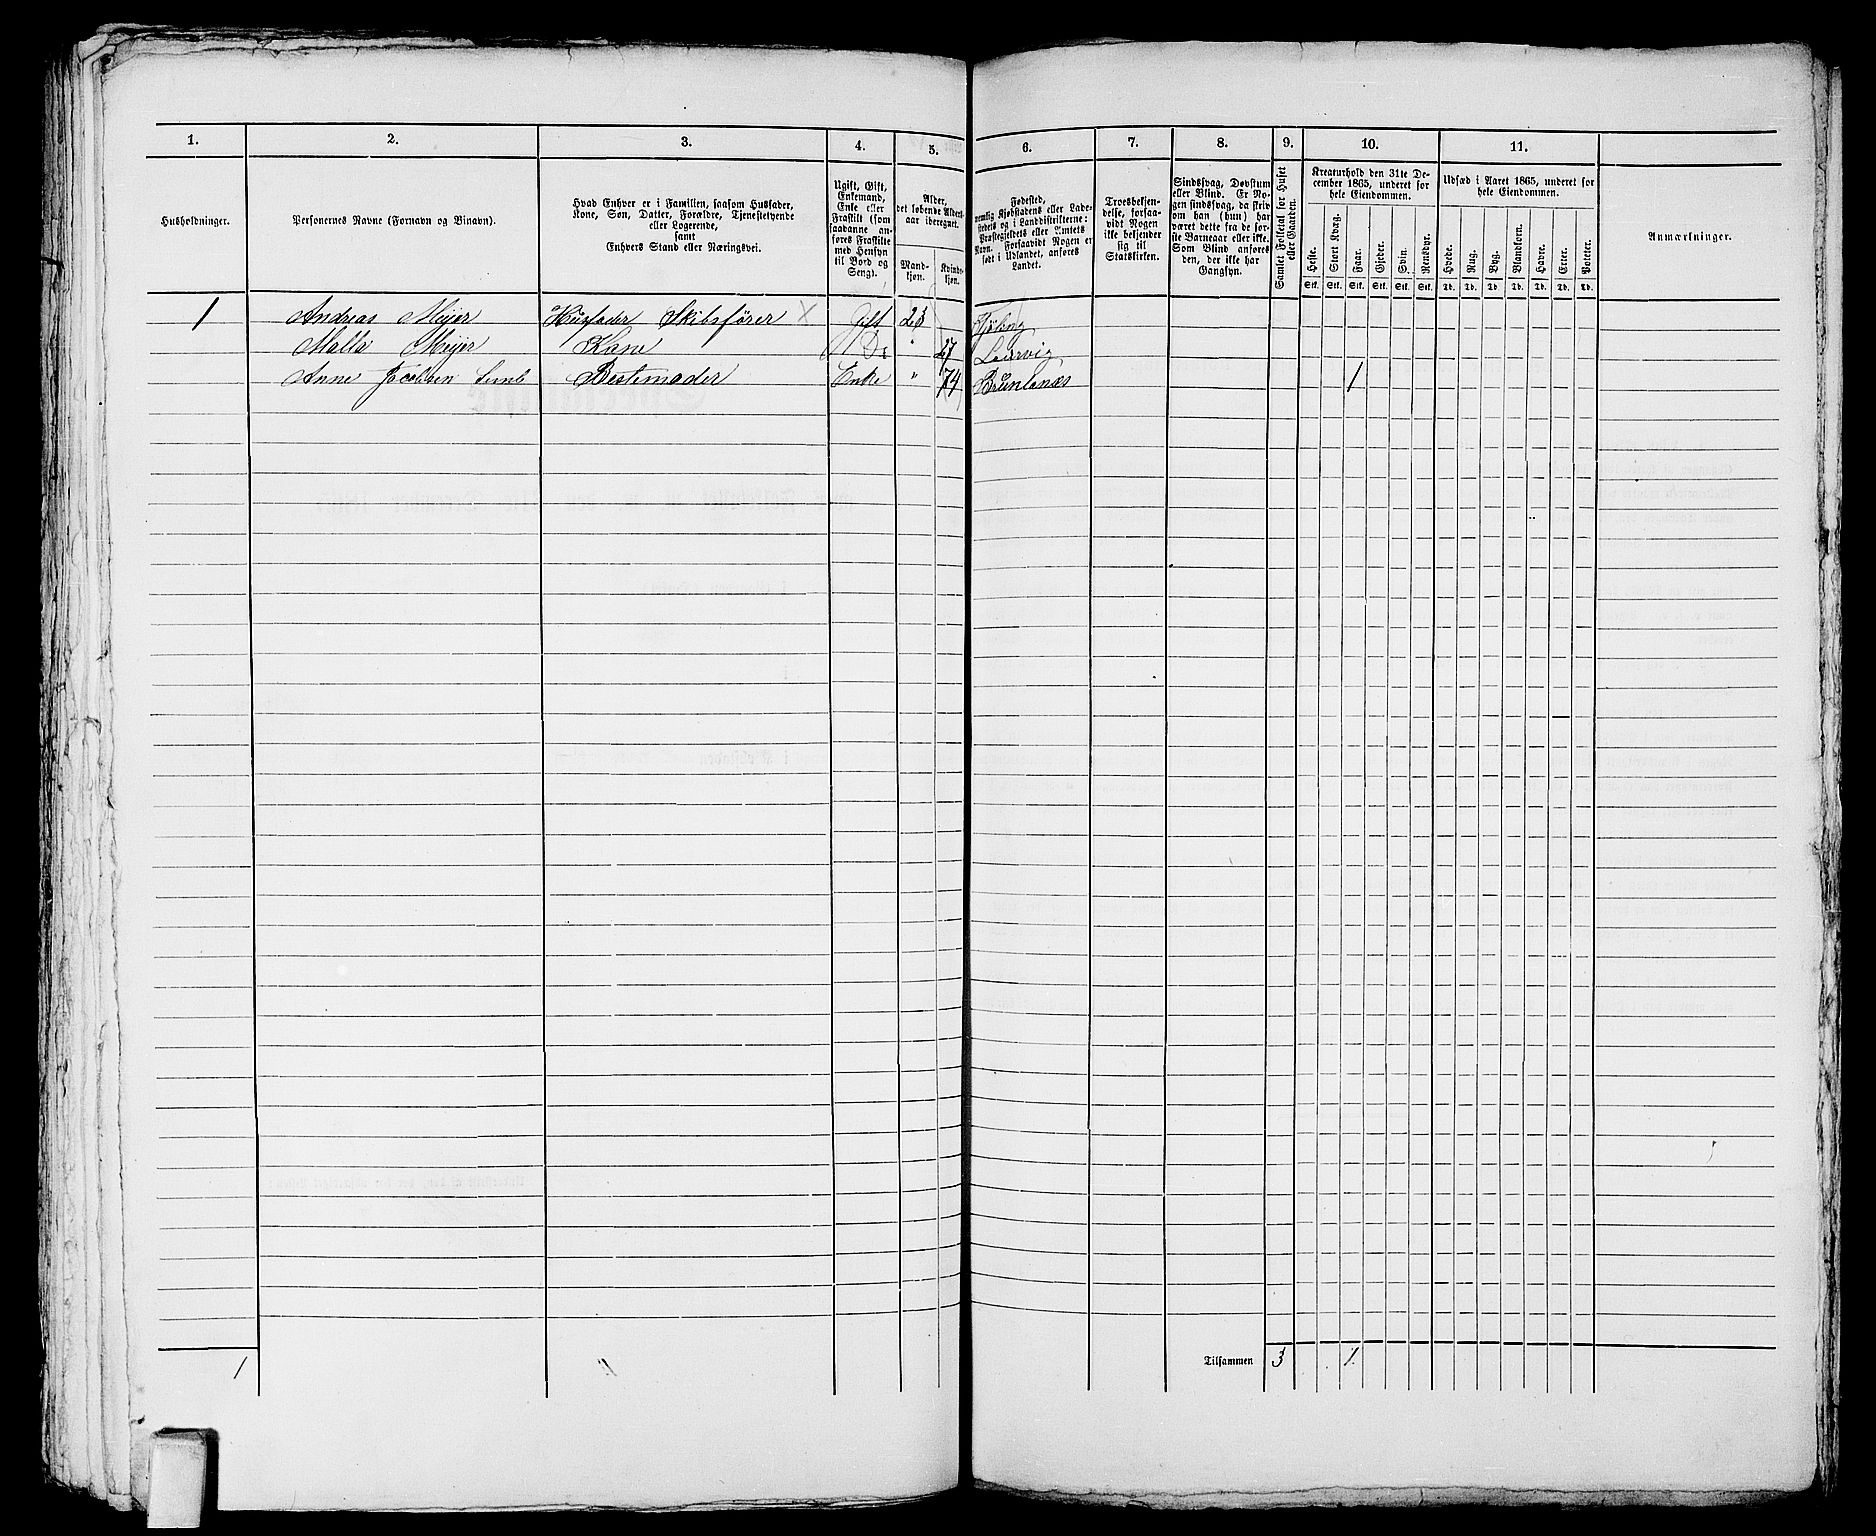 1. 2. 3. 4. 5. 6. 7. 8. 9. 10. 11.
Husholdninger.
Personernes Navne (Fornavn og Binavn).
Hvad Enhver er i Familien, saasom Husfader,
Kone, Søn, Datter, Forældre, Tjenestetyende
eller Logerende,
samt
Enhvers Stand eller Næringsvei.
Ugift, Gift,
Enkemand,
Enke eller
Fraskilt (som
saadanne an-
føres Fraskilte
med Hensyn
til Bord og
Seng).
Alder,
det løbende Alders-
aar iberegnet.
Mand-
kjøn.
Kvinde-
kjøn.
Fødested,
nemlig Kjøbstadens eller Lade-
stedets eller i Landdistrikterne:
Præstegjeldets eller Amtets
Navn. Forsaavidt Nogen er
født i Udlandet, anføres
Landet.
Troesbekjen-
delse, forsaa-
vidt Nogen
ikke bekjender
sig til
Statskirken.
Sindssvag, Døvstum
eller Blind. Er No-
gen sindssvag, da skriv
om han (hun) har
været dette fra de før-
ste Barneaar eller ikke.
Som Blind anføres
den, der ikke har
Gangsyn.
Samlet Folketal for Huset
eller Gaarden.
Kreaturhold den 31te De-
cember 1865, underet for
hele Eiendommen.
Heste. Stort Kvæg. Faar. Gjeder. Svin. Rensdyr.
Stk. Stk. Stk. Stk. Stk. Stk.
Udsæd i Aaret 1865, underet for
hele Eiendommen.
Hvede. Rug. Byg. Blandkorn. Havre. Erter. Poteter.
Td. Td. Td. Td. Td. Td. Td.
Anmærkninger.
1 Andreas Meyer Husfader Skibsfører X Gift 23 Tjøling
Malla Meyer Kone Do " 27 Laurvig
Anne Jacobsen Enke " 74 Bestemoder Brunlanæs 1
1 Tilsammen 3 1.